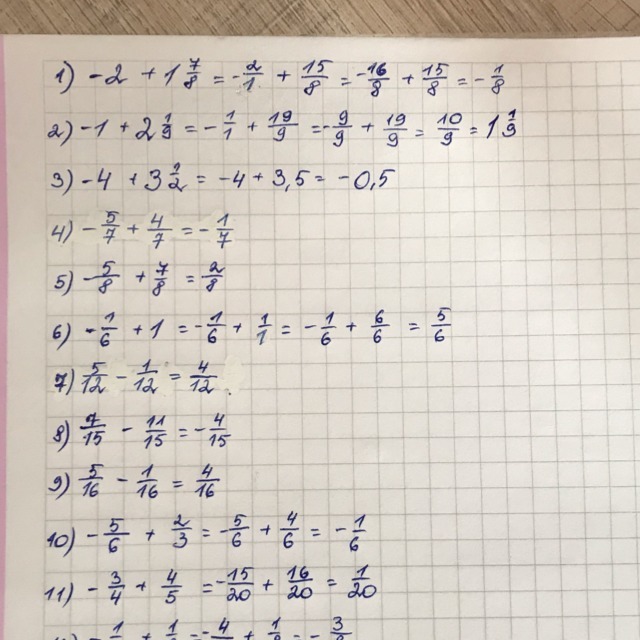 1) -2 + 1 7/8 = -2/1 + 15/8 = -16/8 + 15/8 = -1/8
2) -1 + 2 1/9 = -1/1 + 19/9 = -9/9 + 19/9 = 10/9 = 1 1/9
3) -4 + 3 1/2 = -4 + 3,5 = -0,5
4) -5/7 + 4/7 = -1/7
5) -5/8 + 7/8 = 2/8
6) -1/6 + 1 = -1/6 + 1/1 = -1/6 + 6/6 = 5/6
7) 5/12 - 1/12 = 4/12
8) 7/15 - 11/15 = -4/15
9) 5/16 - 1/16 = 4/16
10) -5/6 + 2/3 = -5/6 + 4/6 = -1/6
11) -3/4 + 4/5 = -15/20 + 16/20 = 1/20